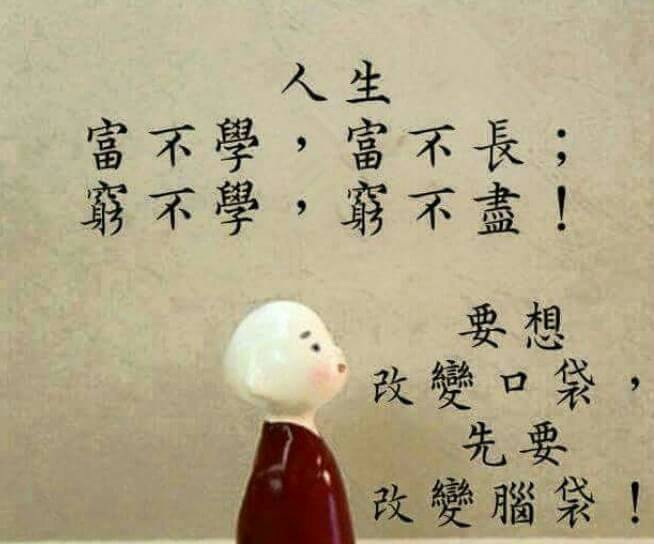 人生
富不學，富不長；
窮不學，窮不盡！
要想
改變口袋，
先要
改變腦袋！